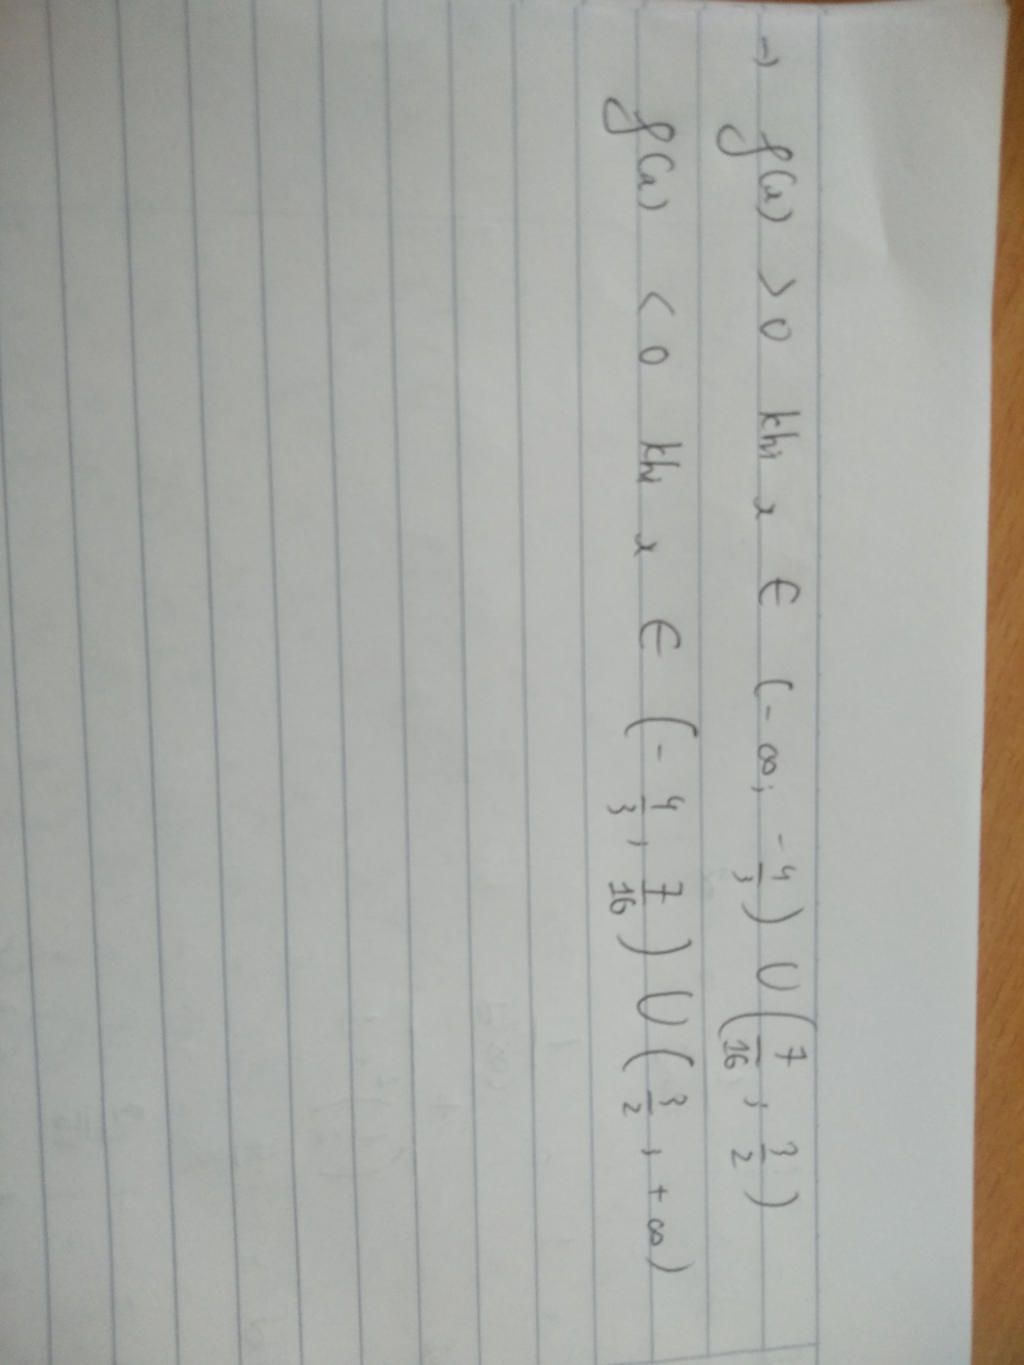 → f(x) > 0 khi x ∈ (-∞; -4/3) ∪ (7/16; 3/2)
f(x) < 0 khi x ∈ (-4/3; 7/16) ∪ (3/2; +∞)